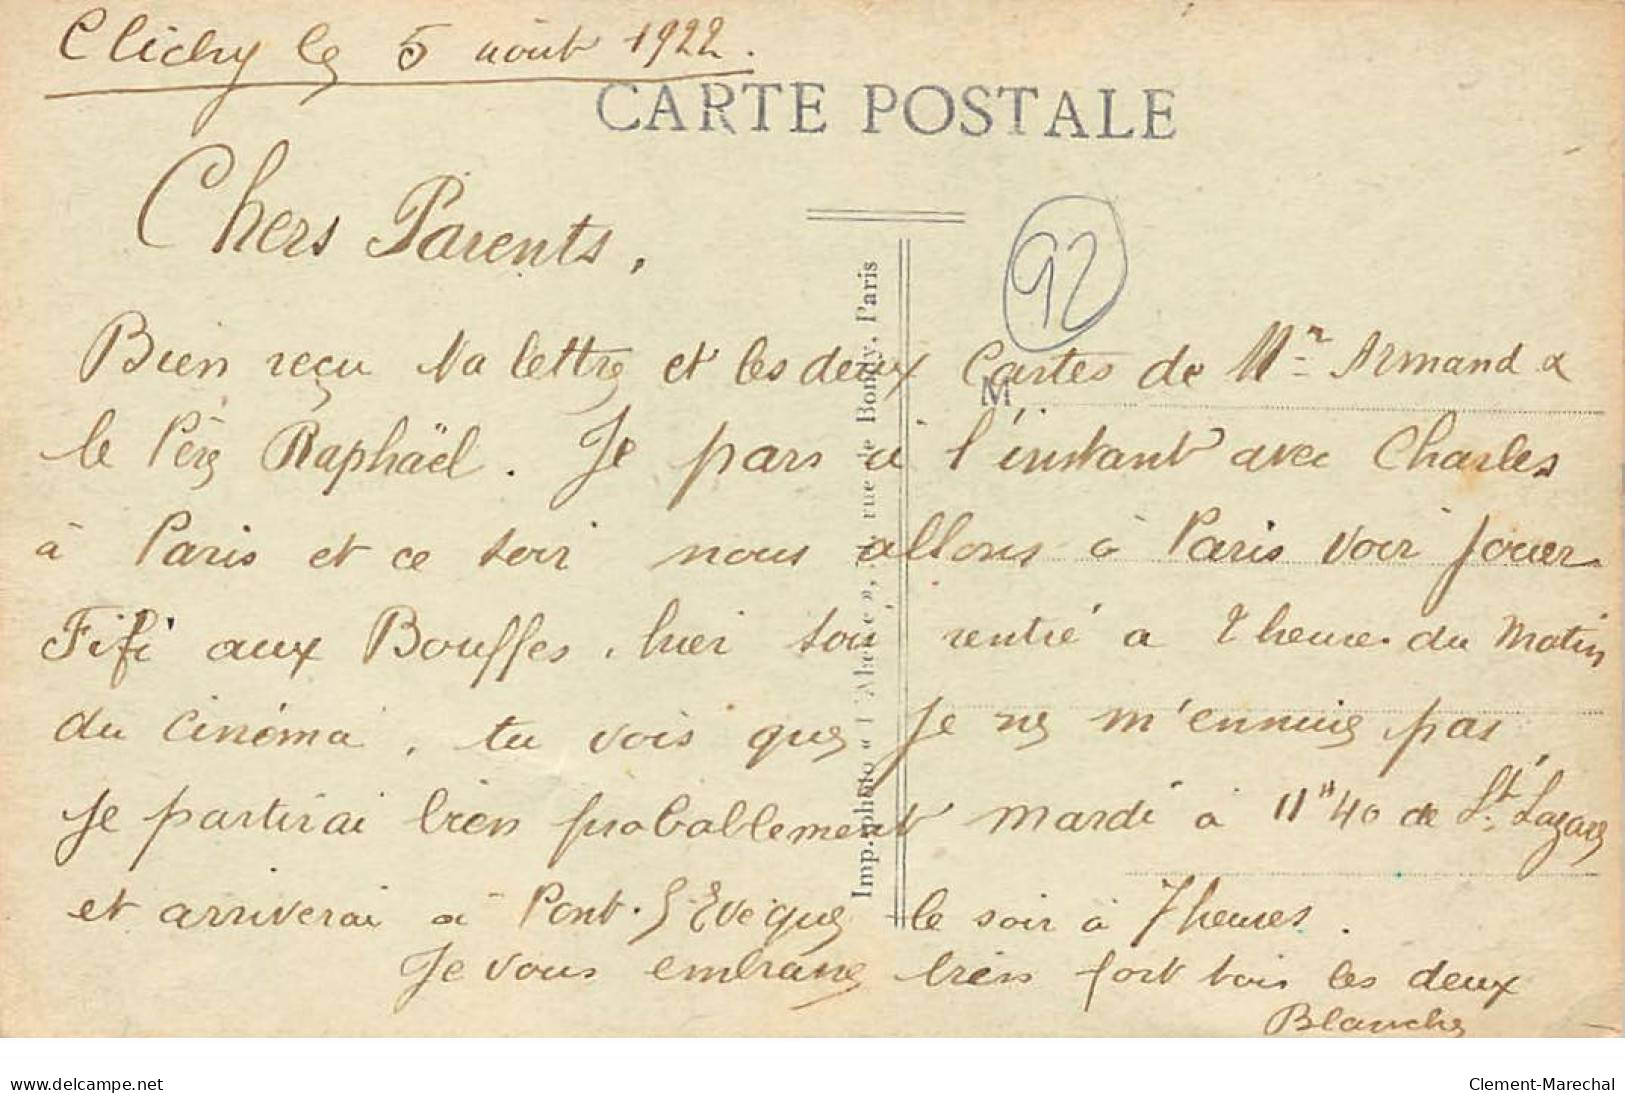 Clichy le 5 août 1922.
CARTE POSTALE
Chers Parents,
92
Bien reçu ta lettre et les deux Cartes de Mr Armand &
M
le Père Raphaël. Je pars à l'instant avec Charles
à Paris et ce soir nous allons à Paris voir jouer
Fifi aux Bouffes. hier soir rentré a 2 heure. du Matin
du cinéma, tu vois que je ne m'ennuie pas,
je partirai bien probablement mardi à 11h40 de St. Lazare
et arriverai à Pont-St-Evêque le soir à 7 heures.
Je vous embrasse bien fort tous les deux
Blanche
Imp. photo rue de Bondy, Paris
www.delcampe.net
Clement-Marechal